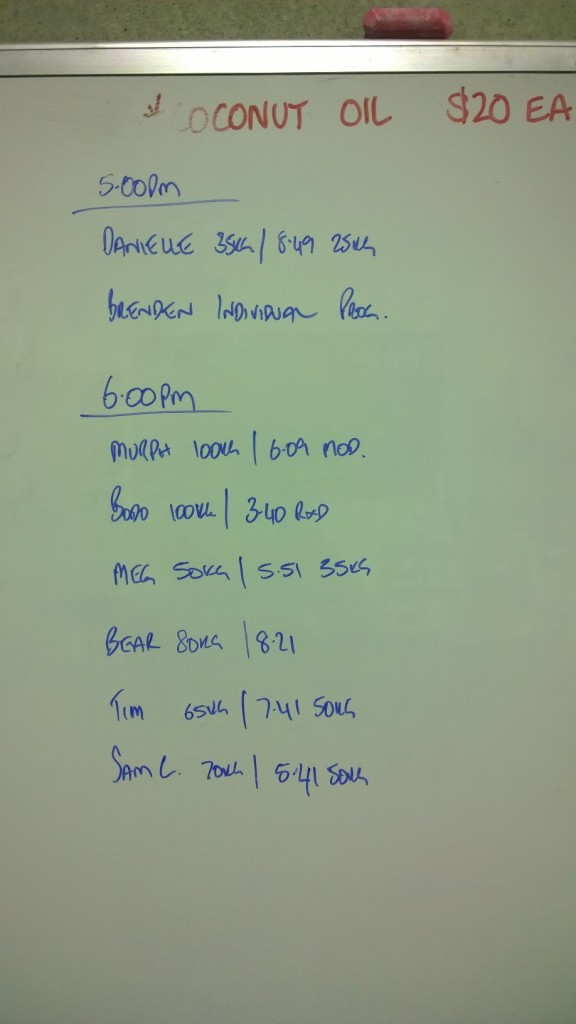 COCONUT OIL $20 EA
5:00pm
DANIELLE 35KG / 8:49 25KG
BRENDEN INDIVIDUAL PROG.
6:00pm
MURPH 100KG / 6:09 MOD.
BODO 100KG / 3:40 RXD
MEG 50KG / 5:51 35KG
BEAR 80KG / 8:21
TIM 65KG / 7:41 50KG
SAM C. 70KG / 5:41 50KG